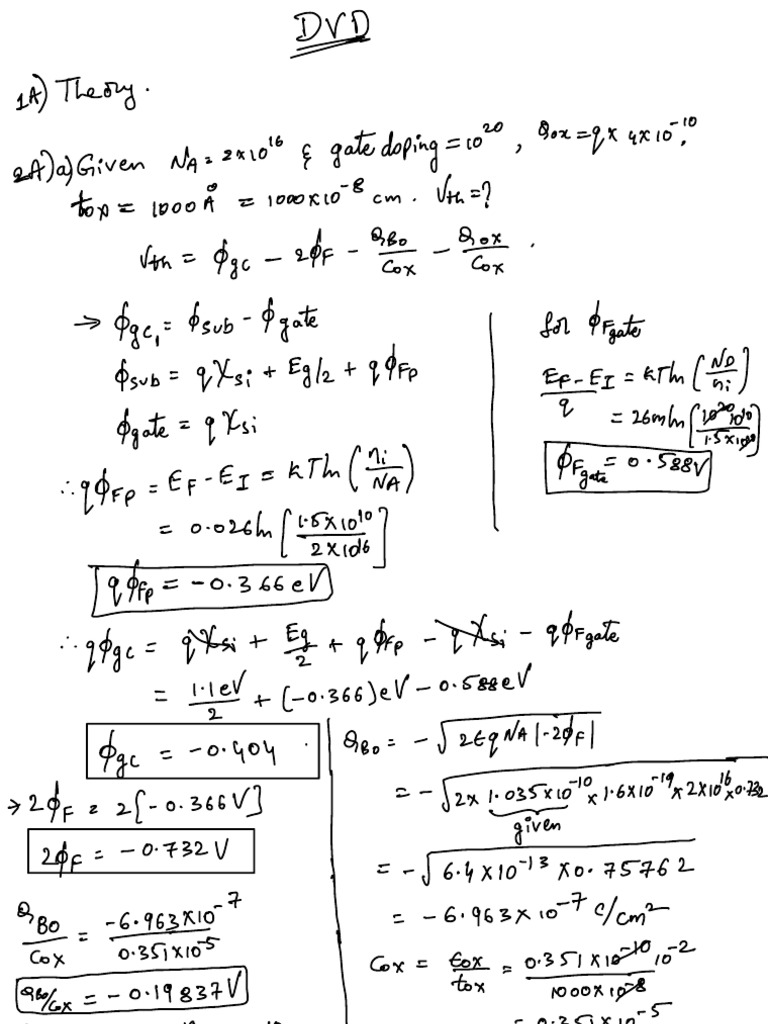 DVD
1A) Theory.
2A)a) Given NA = 2×10^16 & gate doping = 10^20, Qox = q × 4×10^-10.
tox = 1000 Å = 1000×10^-8 cm. Vth = ?
Vth = ϕgc - 2ϕF - QBo/Cox - Qox/Cox.
→ ϕgc, = ϕsub - ϕgate
ϕsub = qχsi + Eg/2 + qϕFp
ϕgate = qχsi
∴ qϕFp = EF - EI = kT ln (ni/NA)
= 0.026 ln [1.5×10^10 / 2×10^16]
qϕFp = -0.366 eV
for ϕFgate
EF - EI / q = kT ln (ND/ni)
= 26m ln [10^20 / 1.5×10^10]
ϕFgate = 0.588V
∴ qϕgc = qχsi + Eg/2 + qϕFp - qχsi - qϕFgate
= 1.1eV/2 + (-0.366)eV - 0.588eV
ϕgc = -0.404
→ 2ϕF = 2[-0.366V]
2ϕF = -0.732V
QBo/Cox = -6.963×10^-7 / 0.351×10^-5
QBo/Cox = -0.19837V
QBo = -√2εqNA|-2ϕF|
= -√2 × 1.035×10^-10 × 1.6×10^-19 × 2×10^16 × 0.732
given
= -√6.4×10^-13 × 0.75762
= -6.963×10^-7 C/cm^2
Cox = εox/tox = 0.351×10^-10 10^-2 / 1000×10^-8
= 0.351×10^-5